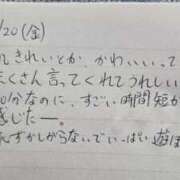 /20 (金)
れきれいとか、かわいいって
たくさん言ってくれてうれしい
0分なのに、すごい時間短か
感じたー。
恥ずかしがらないでいっぱい遊ぼ